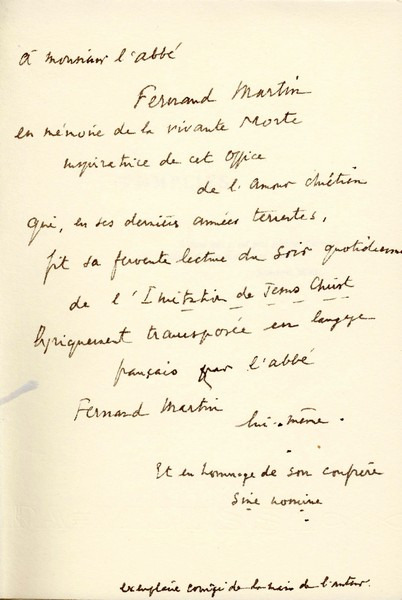 À monsieur l'abbé
Fernand Martin
en mémoire de la vivante Morte
inspiratrice de cet Office
de l'Amour chrétien
qui, en ses dernières années terrestres,
fit sa fervente lecture du soir quotidienne
de l'Imitation de Jesus Christ
lyriquement transposée en langage
français par l'abbé
Fernand Martin
lui-même.
Et en hommage de son confrère
Sine nomine
exemplaire corrigé de la main de l'auteur.